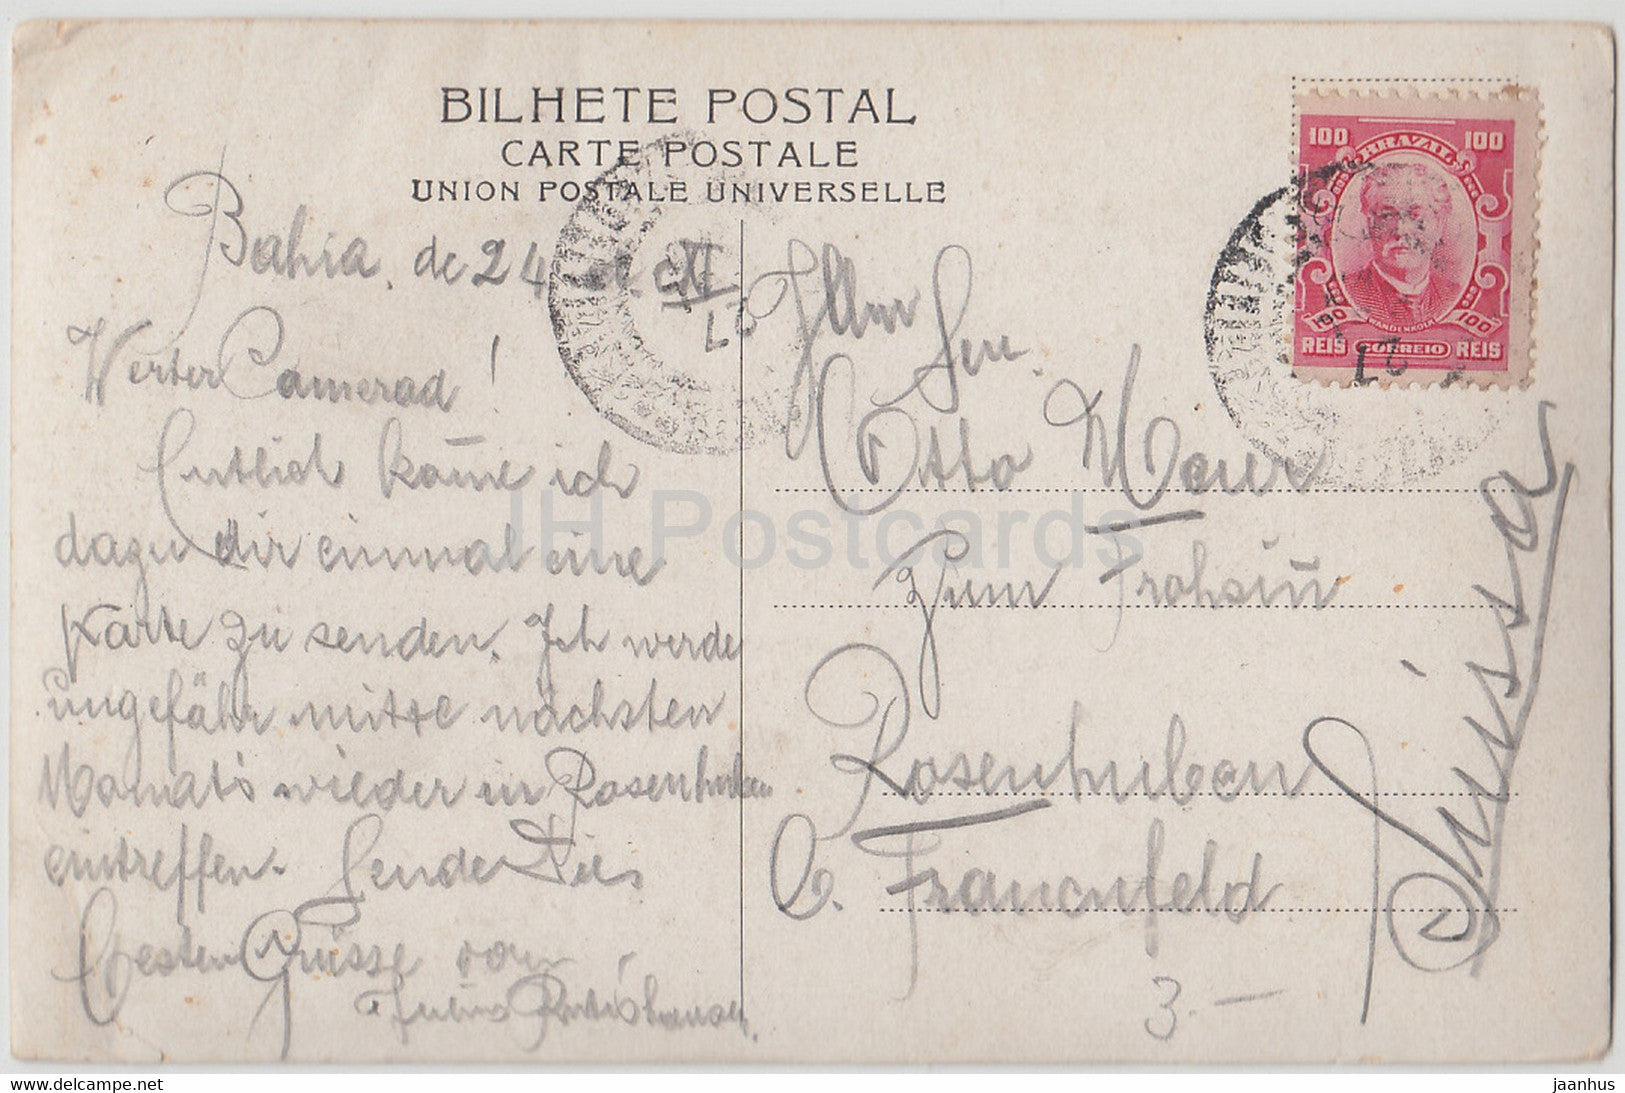 BILHETE POSTAL
CARTE POSTALE
UNION POSTALE UNIVERSELLE
Bahia, de 24 XI
Werter Camerad!
Entlich kom̄e ich
dazu dir einmal eine
Karte zu senden. Ich werde
ungefähr mitte nächsten
Monats wieder in Rosenhuben
eintreffen. Sende Dir
Besten Grüsse von
Julius
Herr
Otto Meier
Zum Frohsin̄
Rosenhuben
b. Frauenfeld
Suissa
3.-
100 BRAZIL 100
WANDENKOLK
100 100
REIS CORREIO REIS
27
27
JH Postcards
www.delcampe.net
jaanhus